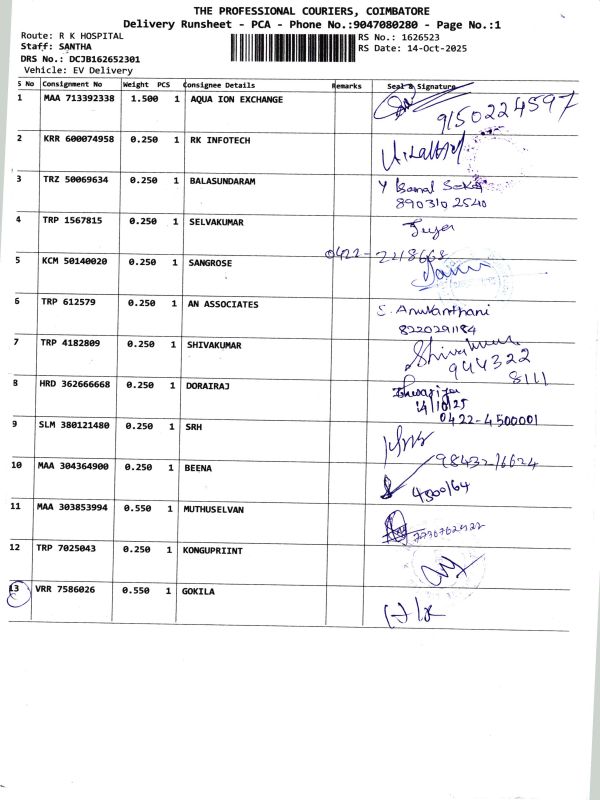 THE PROFESSIONAL COURIERS, COIMBATORE
Delivery Runsheet - PCA - Phone No.:9047080280 - Page No.:1
Route: R K HOSPITAL
RS No.: 1626523
Staff: SANTHA
RS Date: 14-Oct-2025
DRS No.: DCJB162652301
Vehicle: EV Delivery
S No Consignment No Weight PCS Consignee Details Remarks Seal & Signature
1 MAA 713392338 1.500 1 AQUA ION EXCHANGE
9150224597
2 KRR 600074958 0.250 1 RK INFOTECH
3 TRZ 50069634 0.250 1 BALASUNDARAM
890310 2540
4 TRP 1567815 0.250 1 SELVAKUMAR
0422-2218668
5 KCM 50140020 0.250 1 SANGROSE
6 TRP 612579 0.250 1 AN ASSOCIATES
8220291184
7 TRP 4182809 0.250 1 SHIVAKUMAR
944322
8111
8 HRD 362666668 0.250 1 DORAIRAJ
14/10/25
0422-4500001
9 SLM 380121480 0.250 1 SRH
9843216624
10 MAA 304364900 0.250 1 BEENA
4500164
11 MAA 303853994 0.550 1 MUTHUSELVAN
12 TRP 7025043 0.250 1 KONGUPRIINT
13 VRR 7586026 0.550 1 GOKILA